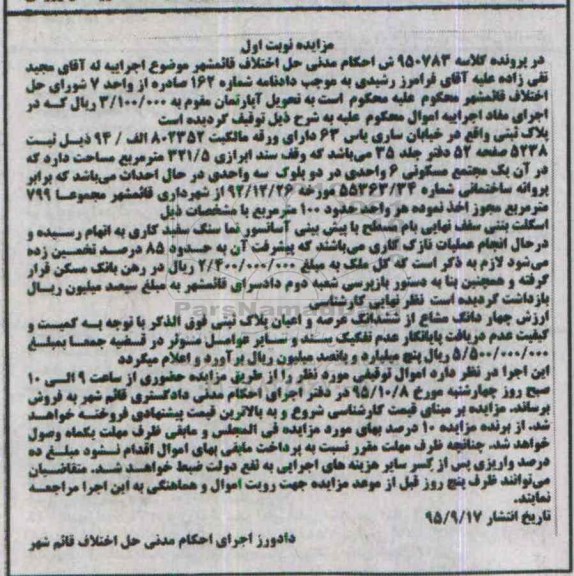 مزایده نوبت اول
در پرونده کلاسه ۹۵۰۷۸۳ ش احکام مدنی حل اختلاف قائمشهر موضوع اجراییه له آقای مجید
تقی زاده علیه آقای فرامرز رشیدی به موجب دادنامه شماره ۱۶۲ صادره از واحد ۷ شورای حل
اختلاف قائمشهر محکوم علیه محکوم است به تحویل آپارتمان مقوم به ۳/۱۰۰/۰۰۰ ریال که در
اجرای مفاد اجراییه اموال محکوم علیه به شرح ذیل توقیف گردیده است
پلاک ثبتی واقع در خیابان ساری یاس ۶۳ دارای ورقه مالکیت ۸۰۲۳۵۲ الف / ۹۴ ذیل ثبت
۵۲۳۸ صفحه ۵۲ دفتر جلد ۳۵ می‌باشد که وقف سند ابرازی ۳۲۱/۵ مترمربع مساحت دارد که
در آن یک مجتمع مسکونی ۶ واحدی در دو بلوک سه واحدی در حال احداث می‌باشد که برابر
پروانه ساختمانی شماره ۵۵۳۶۳/۳۴ مورخه ۹۲/۱۲/۲۶ از شهرداری قائمشهر مجموعا ۷۹۹
مترمربع مجوز اخذ نموده هر واحد حدود ۱۰۰ مترمربع با مشخصات ذیل
اسکلت بتنی سقف نهایی بام مسطح با پیش بینی آسانسور نما سنگ سفید کاری به اتهام رسیده و
درحال انجام عملیات نازک کاری می‌باشند که پیشرفت آن به حدود ۸۵ درصد تخمین زده
می‌شود لازم به ذکر است که کل ملک به مبلغ ۲/۴۰۰/۰۰۰/۰۰۰ ریال در رهن بانک مسکن قرار
گرفته و همچنین بنا به دستور بازپرسی شعبه دوم دادسرای قائمشهر به مبلغ سیصد میلیون ریال
بازداشت گردیده است نظر نهایی کارشناسی
ارزش چهار دانگ مشاع از ششدانگ عرصه و اعیان پلاک ثبتی فوق الذکر با توجه به کمیت و
کیفیت عدم دریافت پایانکار عدم تفکیک سند و سایر عوامل موثر در قضیه جمعا بمبلغ
۵/۵۰۰/۰۰۰/۰۰۰ ریال پنج میلیارد و پانصد میلیون ریال برآورد و اعلام میگردد
این اجرا در نظر دارد اموال توقیفی مورد نظر را از طریق مزایده حضوری از ساعت ۹ الی ۱۰
صبح روز چهارشنبه مورخ ۹۵/۱۰/۸ در دفتر اجرای احکام مدنی دادگستری قائم شهر به فروش
برساند. مزایده بر مبنای قیمت کارشناسی شروع و به بالاترین قیمت پیشنهادی فروخته خواهد
شد. از برنده مزایده ۱۰ درصد بهای مورد مزایده فی المجلس و مابقی ظرف مهلت یکماه وصول
خواهد شد. چنانچه ظرف مهلت مقرر نسبت به پرداخت مابقی بهای اموال اقدام نشود مبلغ ده
درصد واریزی پس از کسر سایر هزینه های اجرایی به نفع دولت ضبط خواهد شد. متقاضیان
می‌توانند ظرف پنج روز قبل از موعد مزایده جهت رویت اموال و هماهنگی به این اجرا مراجعه
نمایند.
تاریخ انتشار ۹۵/۹/۱۷
دادورز اجرای احکام مدنی حل اختلاف قائم شهر